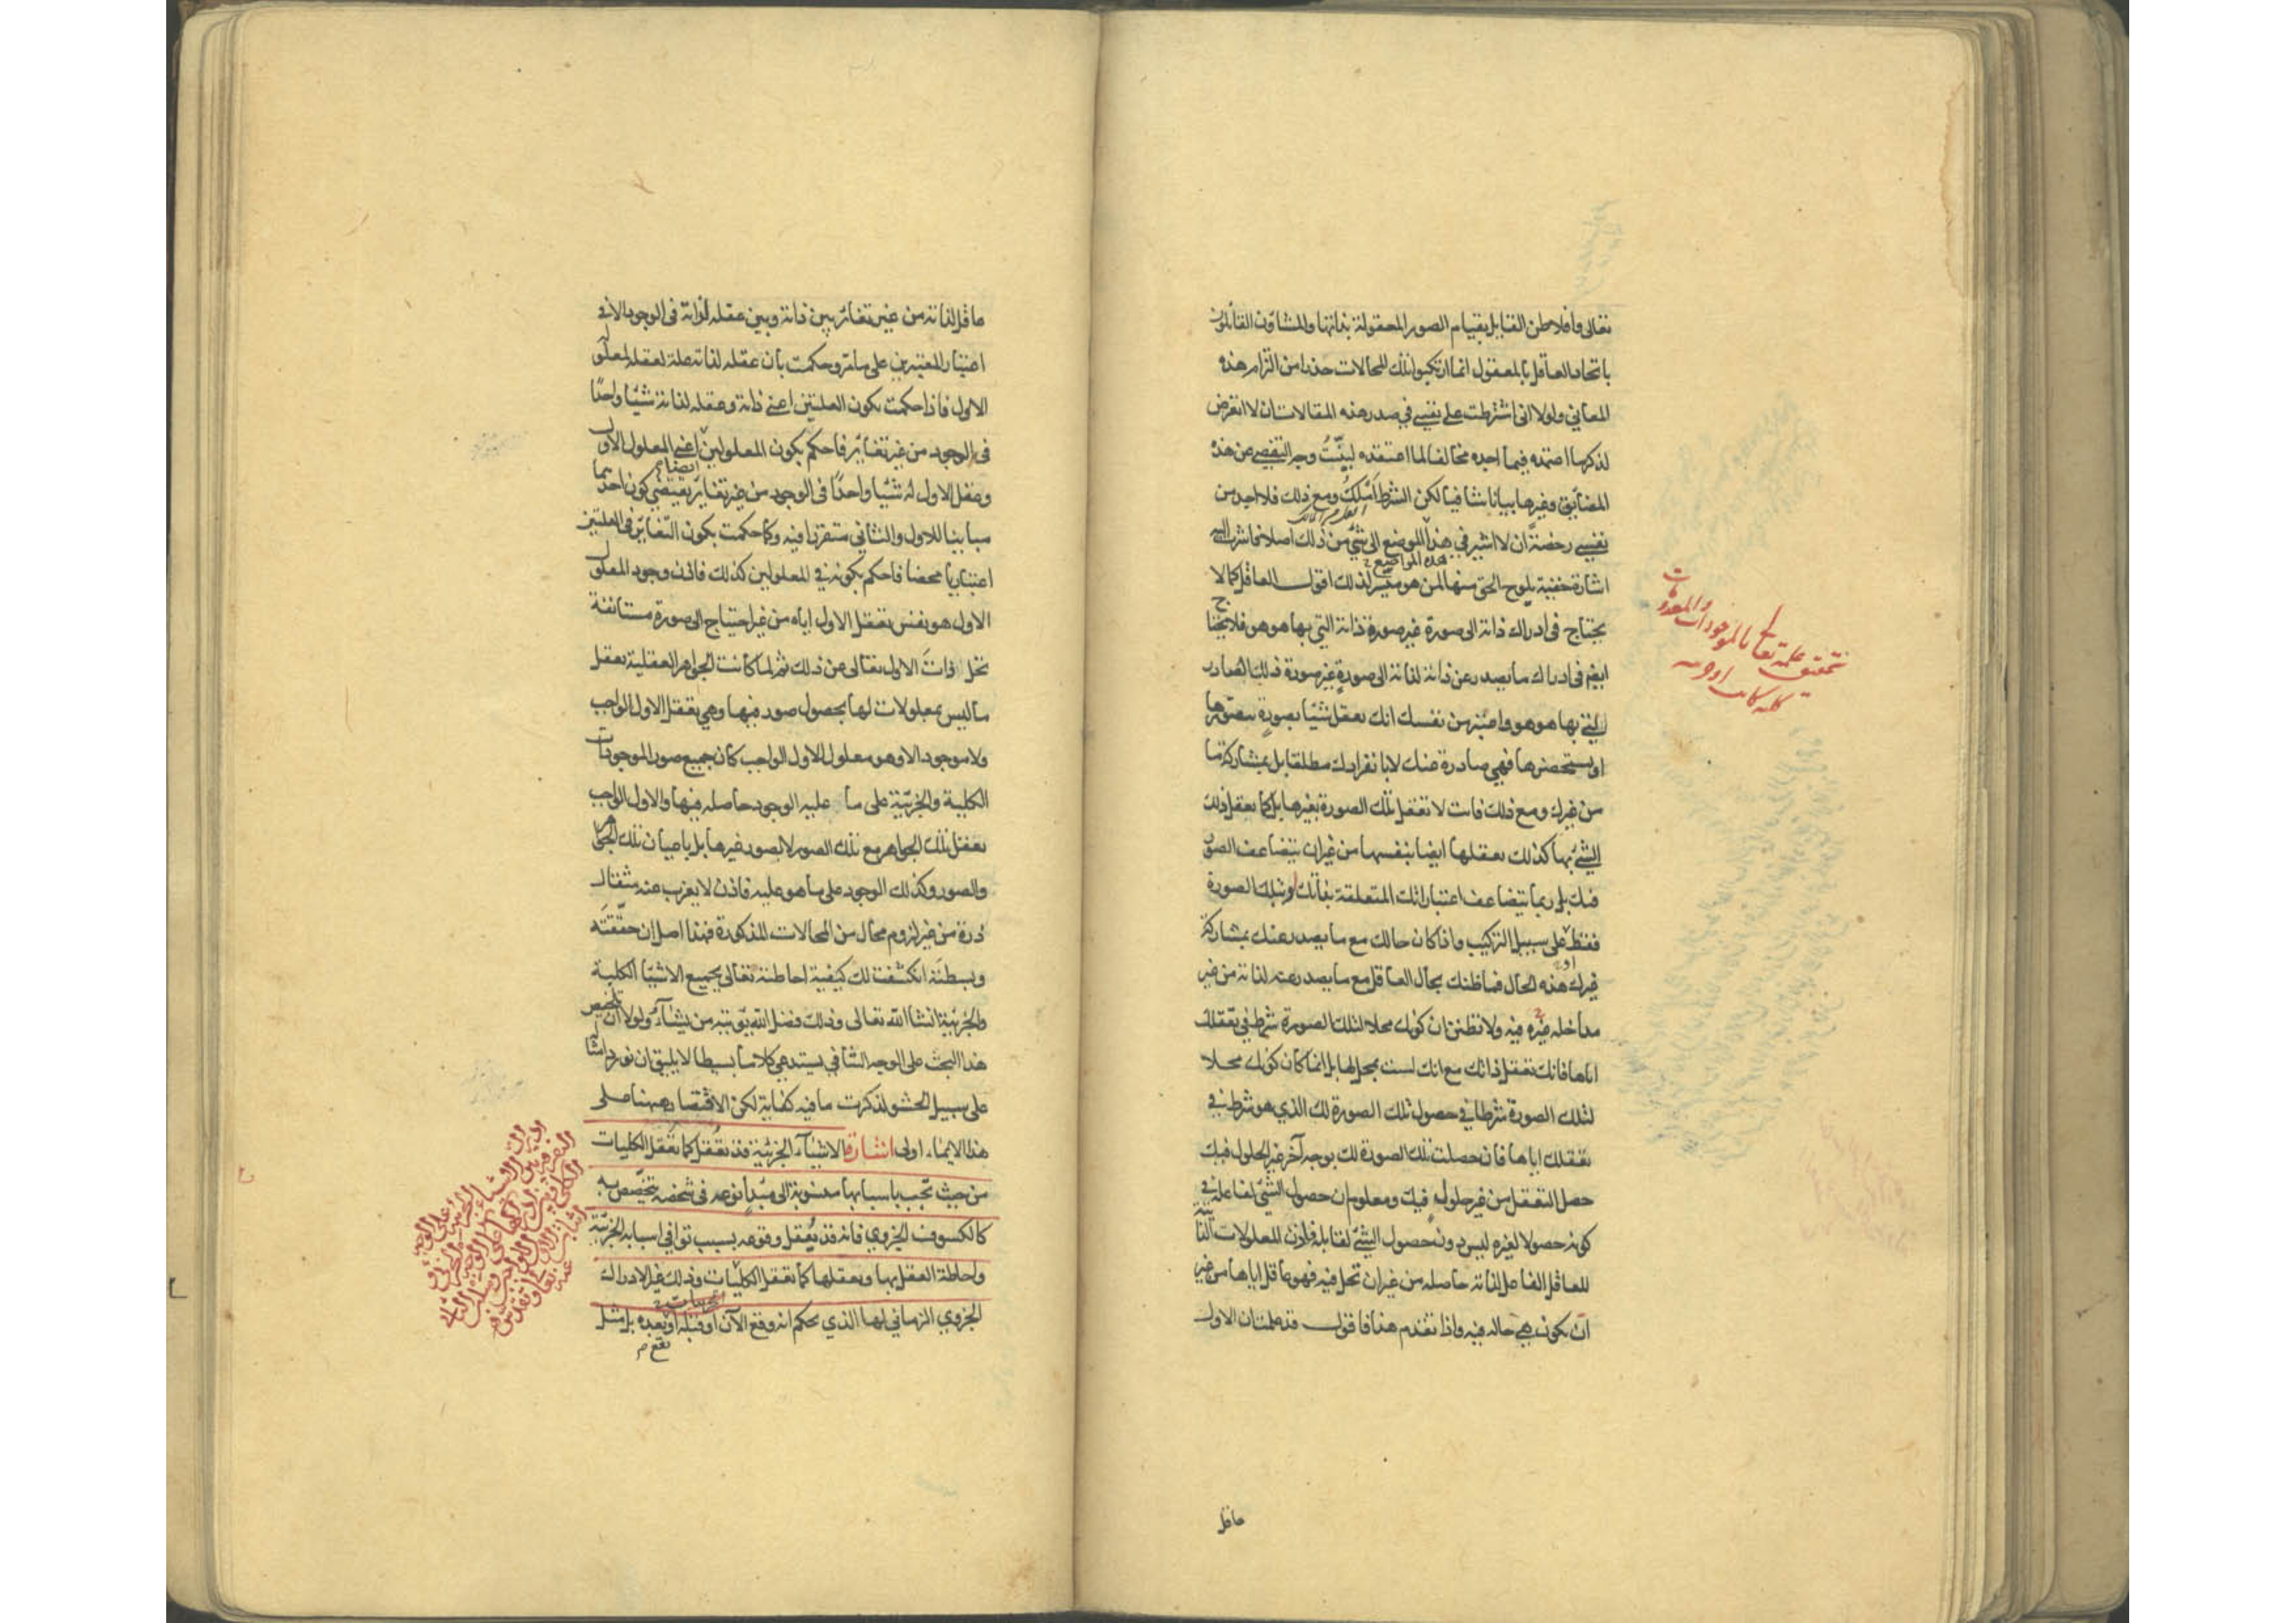 تعالى وافلاطن القايل بقيام الصور المعقولة بذاتها والمشاؤن القائلون
باتحاد العاقل بالمعقول انما ارتكبوا تلك المحالات حذرا من التزام هذه
المعاني ولولا انى اشترطت على نفسي في صدر هذه المقالات ان لا اتعرض
لذكر ما اعتمده فيما اجده مخالفا لما اعتقده لبيّنتُ وجه التفصي عن هذه
المضايق وغيرها بيانا شافيا لكن الشرط املكُ ومع ذلك فلا اجد من
نفسي رخصةً ان لا اشير في هذا الموضع الى شئ من ذلك اصلا فاشرت اليه
هذه المواضع
اشارة خفية يلوح الحق منها لمن هو ميسّر لذلك اقول العاقل كما لا
يحتاج فى ادراك ذاته الى صورة غير صورة ذاته التي بها هو هو فلا يحتاج
ايضا فى ادراك ما يصدر عن ذاته لذاته الى صورةٍ غير صورة ذلك الصادر
التي بها هو هو واعتبر من نفسك انك تعقل شيًا بصورةٍ تتصورها
او تستحضرها فهي صادرة عنك لا بانفرادك مطلقا بل بمشاركة ما
من غيرك ومع ذلك فانت لا تعقل تلك الصورة بغيرها بل كما تعقل ذلك
الشئ بها كذلك تعقلها ايضا بنفسها من غير ان تتضاعف الصور
فيك بل ربما تتضاعف اعتباراتك المتعلقة بذاتك وبتلك الصورة
فقط على سبيل التركيب واذا كان حالك مع ما يصدر عنك بمشاركة
غيرك هذه الحال فما ظنك بحال العاقل مع ما يصدر عنه لذاته من غير
مداخلة غيره فيه ولا تظنن ان كونك محلا لتلك الصورة شرط في تعقلك
اياها فانك تعقل ذاتك مع انك لست بمحل لها بل انما كان كونك محلا
لتلك الصورة شرطا في حصول تلك الصورة لك الذي هو شرط في
تعقلك اياها فان حصلت تلك الصورة لك بوجه آخر غير الحلول فيك
حصل التعقل من غير حلول فيك ومعلوم ان حصول الشئ لفاعله في
كونه حصولا لغيره ليس دون حصول الشئ لقابله فاذن المعلولات الذاتية
للعاقل الفاعل لذاته حاصله من غير ان تحل فيه فهو عاقل اياها من غير
ان تكون هي حاله فيه واذا تقدم هذا فاقول قد علمت ان الاول
عاقل
تحقيق علمه تعالى بالموجودات والمعدومات
كليه كانت او جزئيه
عاقل لذاته من غير تغاير بين ذاته وبين عقله لذاته فى الوجود الا فى
اعتبار المعتبرين على ما مر وحكمت بان عقله لذاته علة لعقله لمعلوله
الاول فاذا حكمت بكون العلتين اعني ذاته وعقله لذاته شيًا واحدًا
فى الوجود من غير تغاير فاحكم بكون المعلولين اعني المعلول الاول
ايضا
وعقل الاول له شيًا واحدًا فى الوجود من غير تغاير يقتضي كون احدهما
مباينا للاول والثاني متقررا فيه وكما حكمت بكون التغاير فى العلتين
اعتباريا محضا فاحكم بكونه في المعلولين كذلك فاذن وجود المعلول
الاول هو نفس تعقل الاول اياه من غير احتياج الى صورة مستانفة
تحل ذاتَ الاول تعالى عن ذلك ثم لما كانت الجواهر العقلية تعقل
ما ليس بمعلولات لها بحصول صور فيها وهي تعقل الاول الواجب
ولا موجود الا وهو معلول للاول الواجب كان جميع صور الموجودات
الكلية والجزئية على ما عليه الوجود حاصله فيها والاول الواجب
يعقل تلك الجواهر مع تلك الصور لا بصور غيرها بل باعيان تلك الجواهر
والصور وكذلك الوجود على ما هو عليه فاذن لا يعزب عنه مثقال
ذرة من غير لزوم محال من المحالات المذكورة فهذا اصل ان حققتَه
وبسطتَه انكشفت لك كيفية احاطته تعالى بجميع الاشيا الكلية
والجزئية انشا الله تعالى وذلك فضل الله يؤتيه من يشاء ولولا ان تلخيص
هذا البحث على الوجه الشافي يستدعي كلاما بسيطا لا يليق ان نورد امثاله
على سبيل الحشو لذكرت ما فيه كفاية لكن الاقتصار ههنا على
هذا الايماء اولى اشارة الاشياء الجزئية قد تُعقل كما تُعقل الكليات
من حيث تجب باسبابها منسوبة الى مبدأ نوعه فى شخصه تتخصّص به
كالكسوف الجزوي فانه قد يُعقل وقوعه بسبب توافي اسبابه الجزئية
واحاطة العقل بها وتعقلها كما تعقل الكليات وذلك غير الادراك
الجزوي الزماني لها الذي يحكم انه وقع الآن او قبله او بعده بل مثل
يقع م